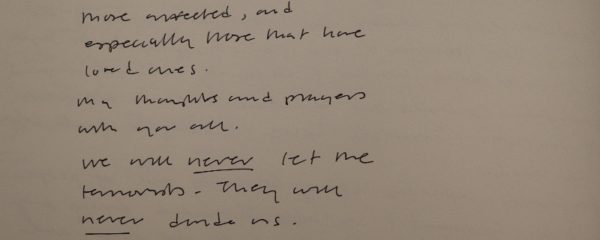 those affected, and
especially those that have
loved ones.
my thoughts and prayers
with you all.
we will never let the
terrorists - They will
never divide us.